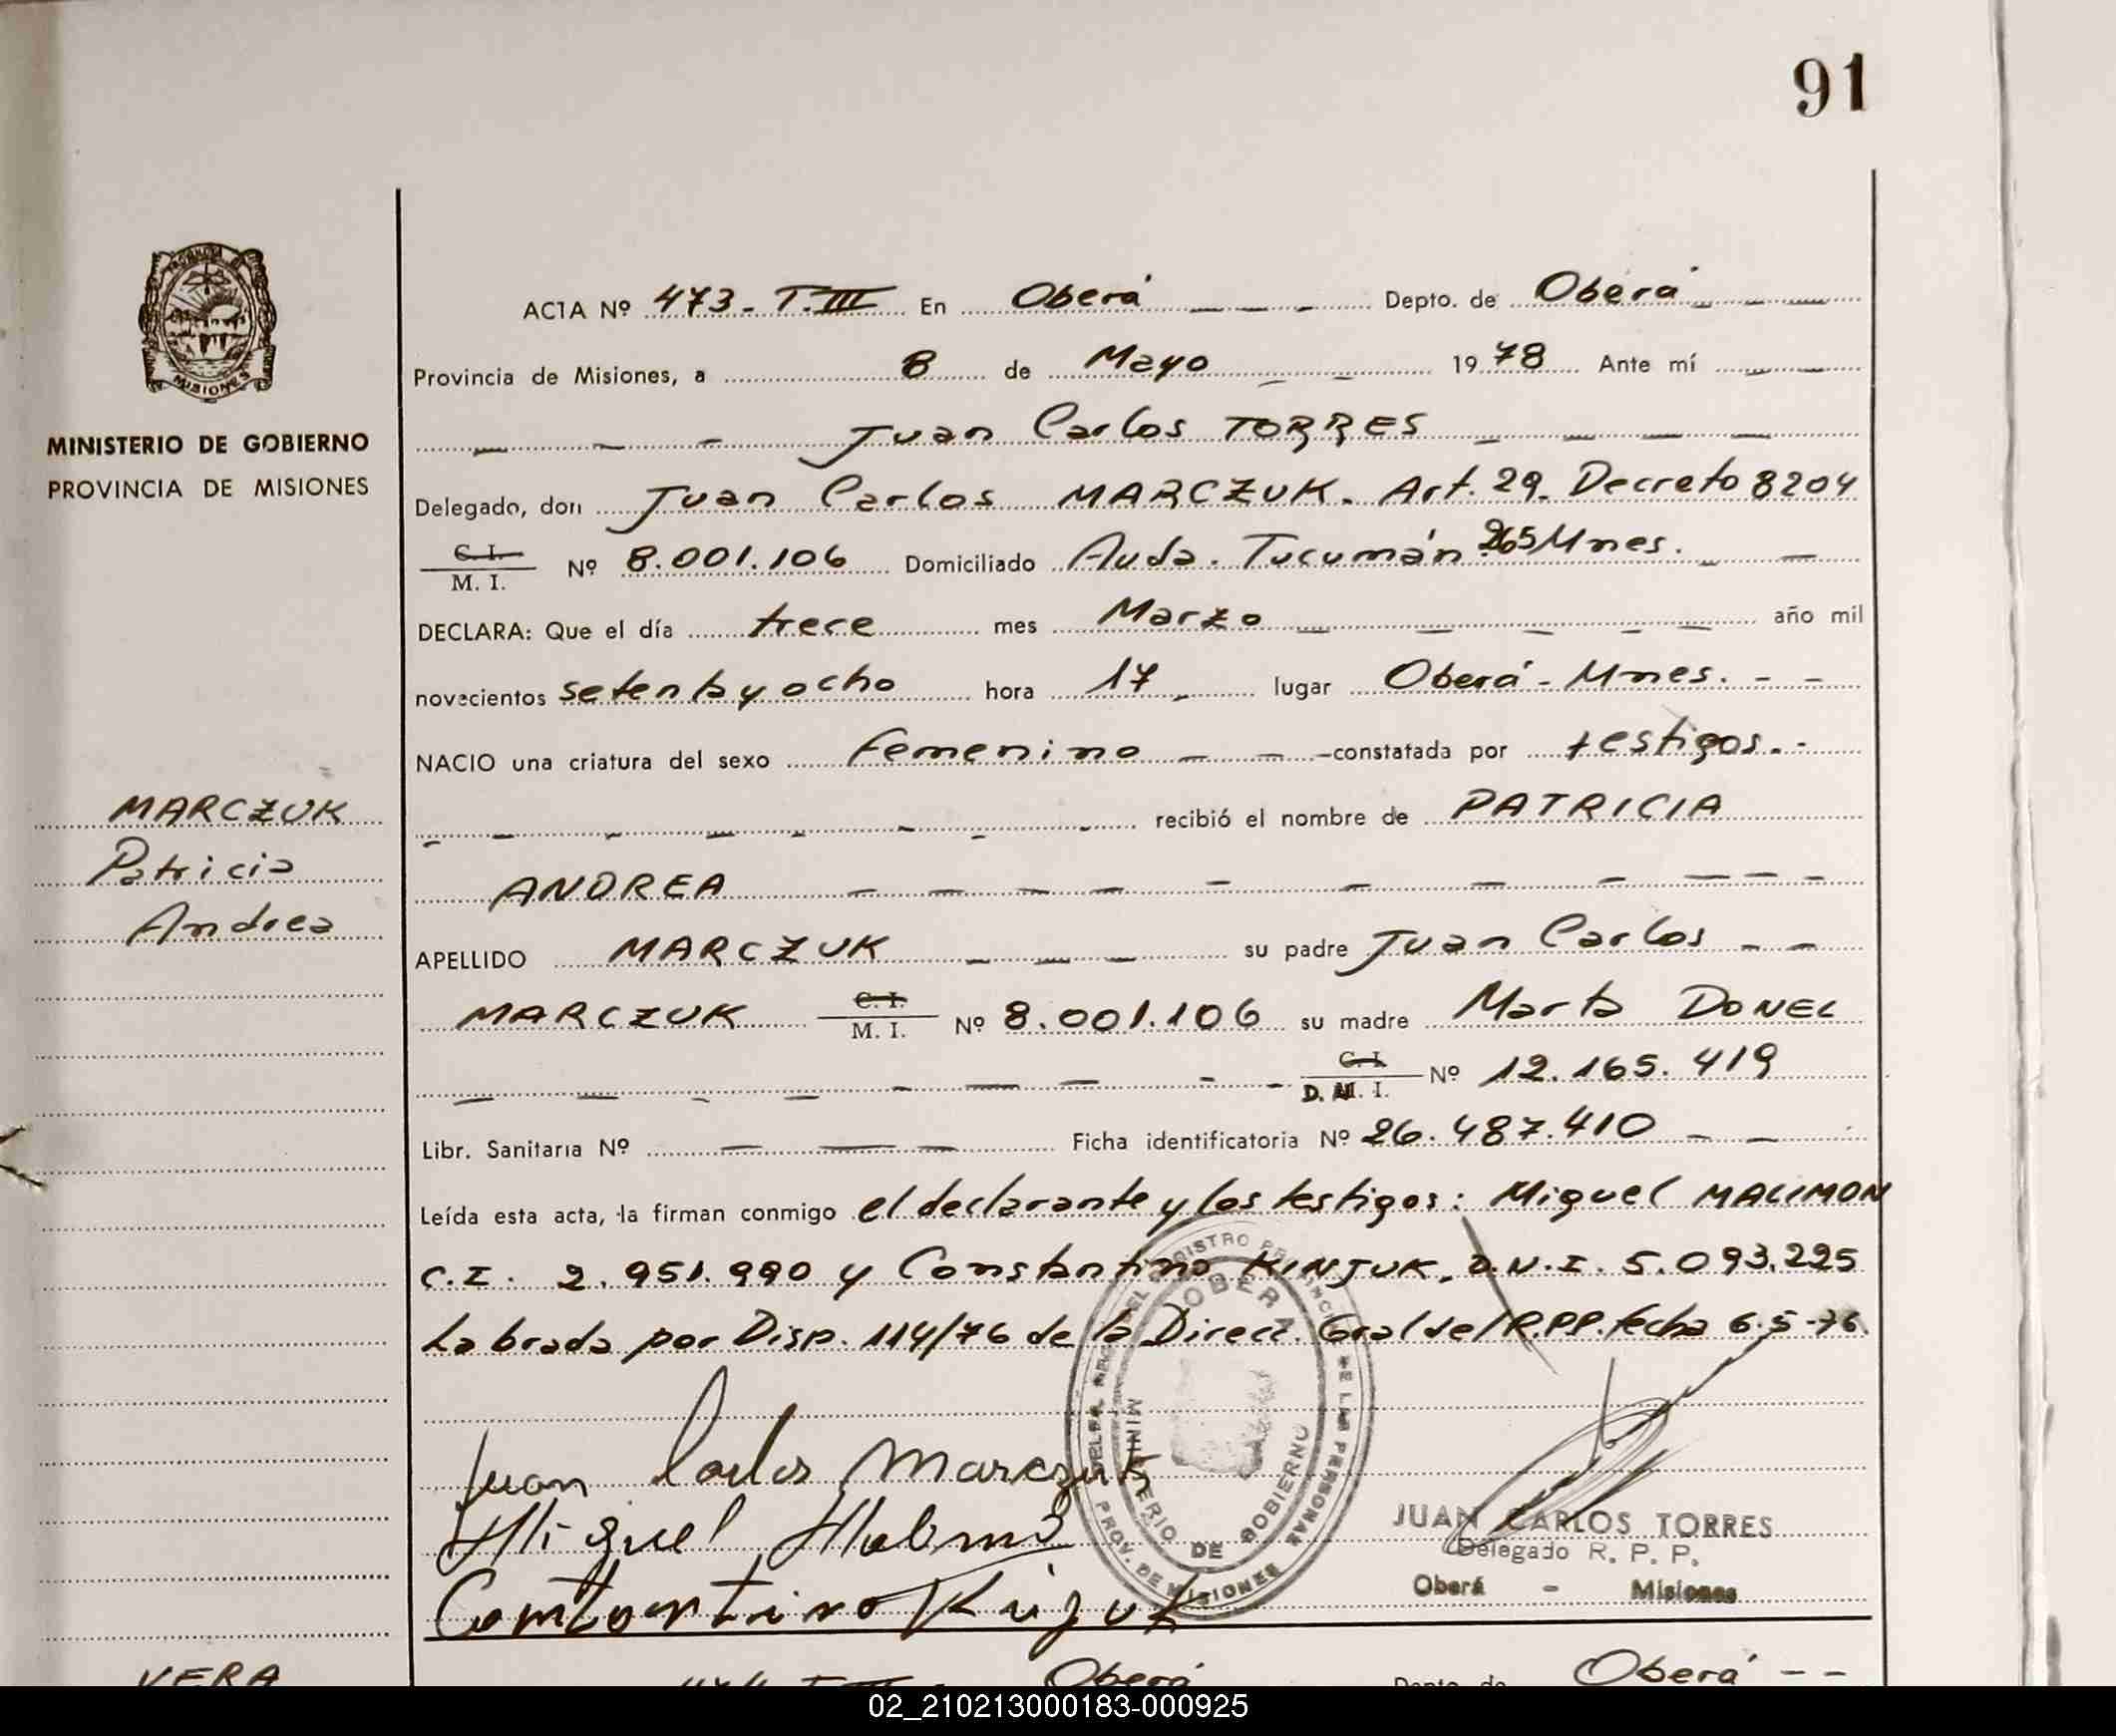 91
ACTA Nº 473 - T. III En Oberá Depto. de Oberá
Provincia de Misiones, a 8 de Mayo 1978 Ante mí
Juan Carlos TORRES
MINISTERIO DE GOBIERNO
PROVINCIA DE MISIONES
Delegado, don Juan Carlos MARCZUK. Art. 29. Decreto 8204
C. I. / M. I. Nº 8.001.106 Domiciliado Avda. Tucumán 265 Mnes.
DECLARA: Que el día trece mes Marzo año mil
novecientos setenta y ocho hora 17 lugar Oberá - Mnes.
NACIO una criatura del sexo femenino constatada por testigos.
MARCZUK
Patricia
Andrea
recibió el nombre de PATRICIA
ANDREA
APELLIDO MARCZUK su padre Juan Carlos
MARCZUK C. I. / M. I. Nº 8.001.106 su madre Marta DONEL
C. I. / D. N. I. Nº 12.165.419
Libr. Sanitaria Nº Ficha identificatoria Nº 26.487.410
Leída esta acta, la firman conmigo el declarante y los testigos: Miguel MALIMON
C.I. 2.951.990 y Constantino KINJUK, D.N.I. 5.093.225
Labrada por Disp. 114/76 de la Direcc. Gral del R.P.P. fecha 6-5-76.
Juan Carlos Marczuk
Miguel
Constantino
OBERA
MINISTERIO DE GOBIERNO
PROV. DE MISIONES
JUAN CARLOS TORRES
Delegado R. P. P.
Oberá - Misiones
VERA
Oberá Depto. de Oberá
02_210213000183-000925